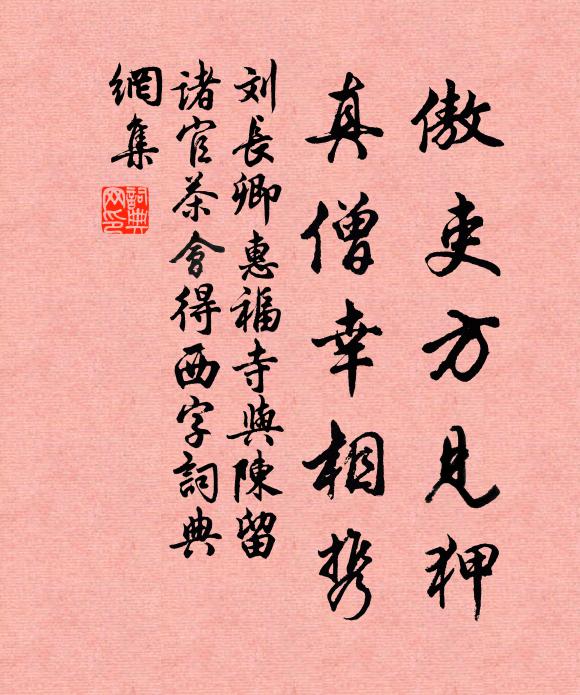 傲吏方見狎
真僧幸相携
刘長卿惠福寺與陳留
诸官茶會得西字詞典
網集
詞典
网印